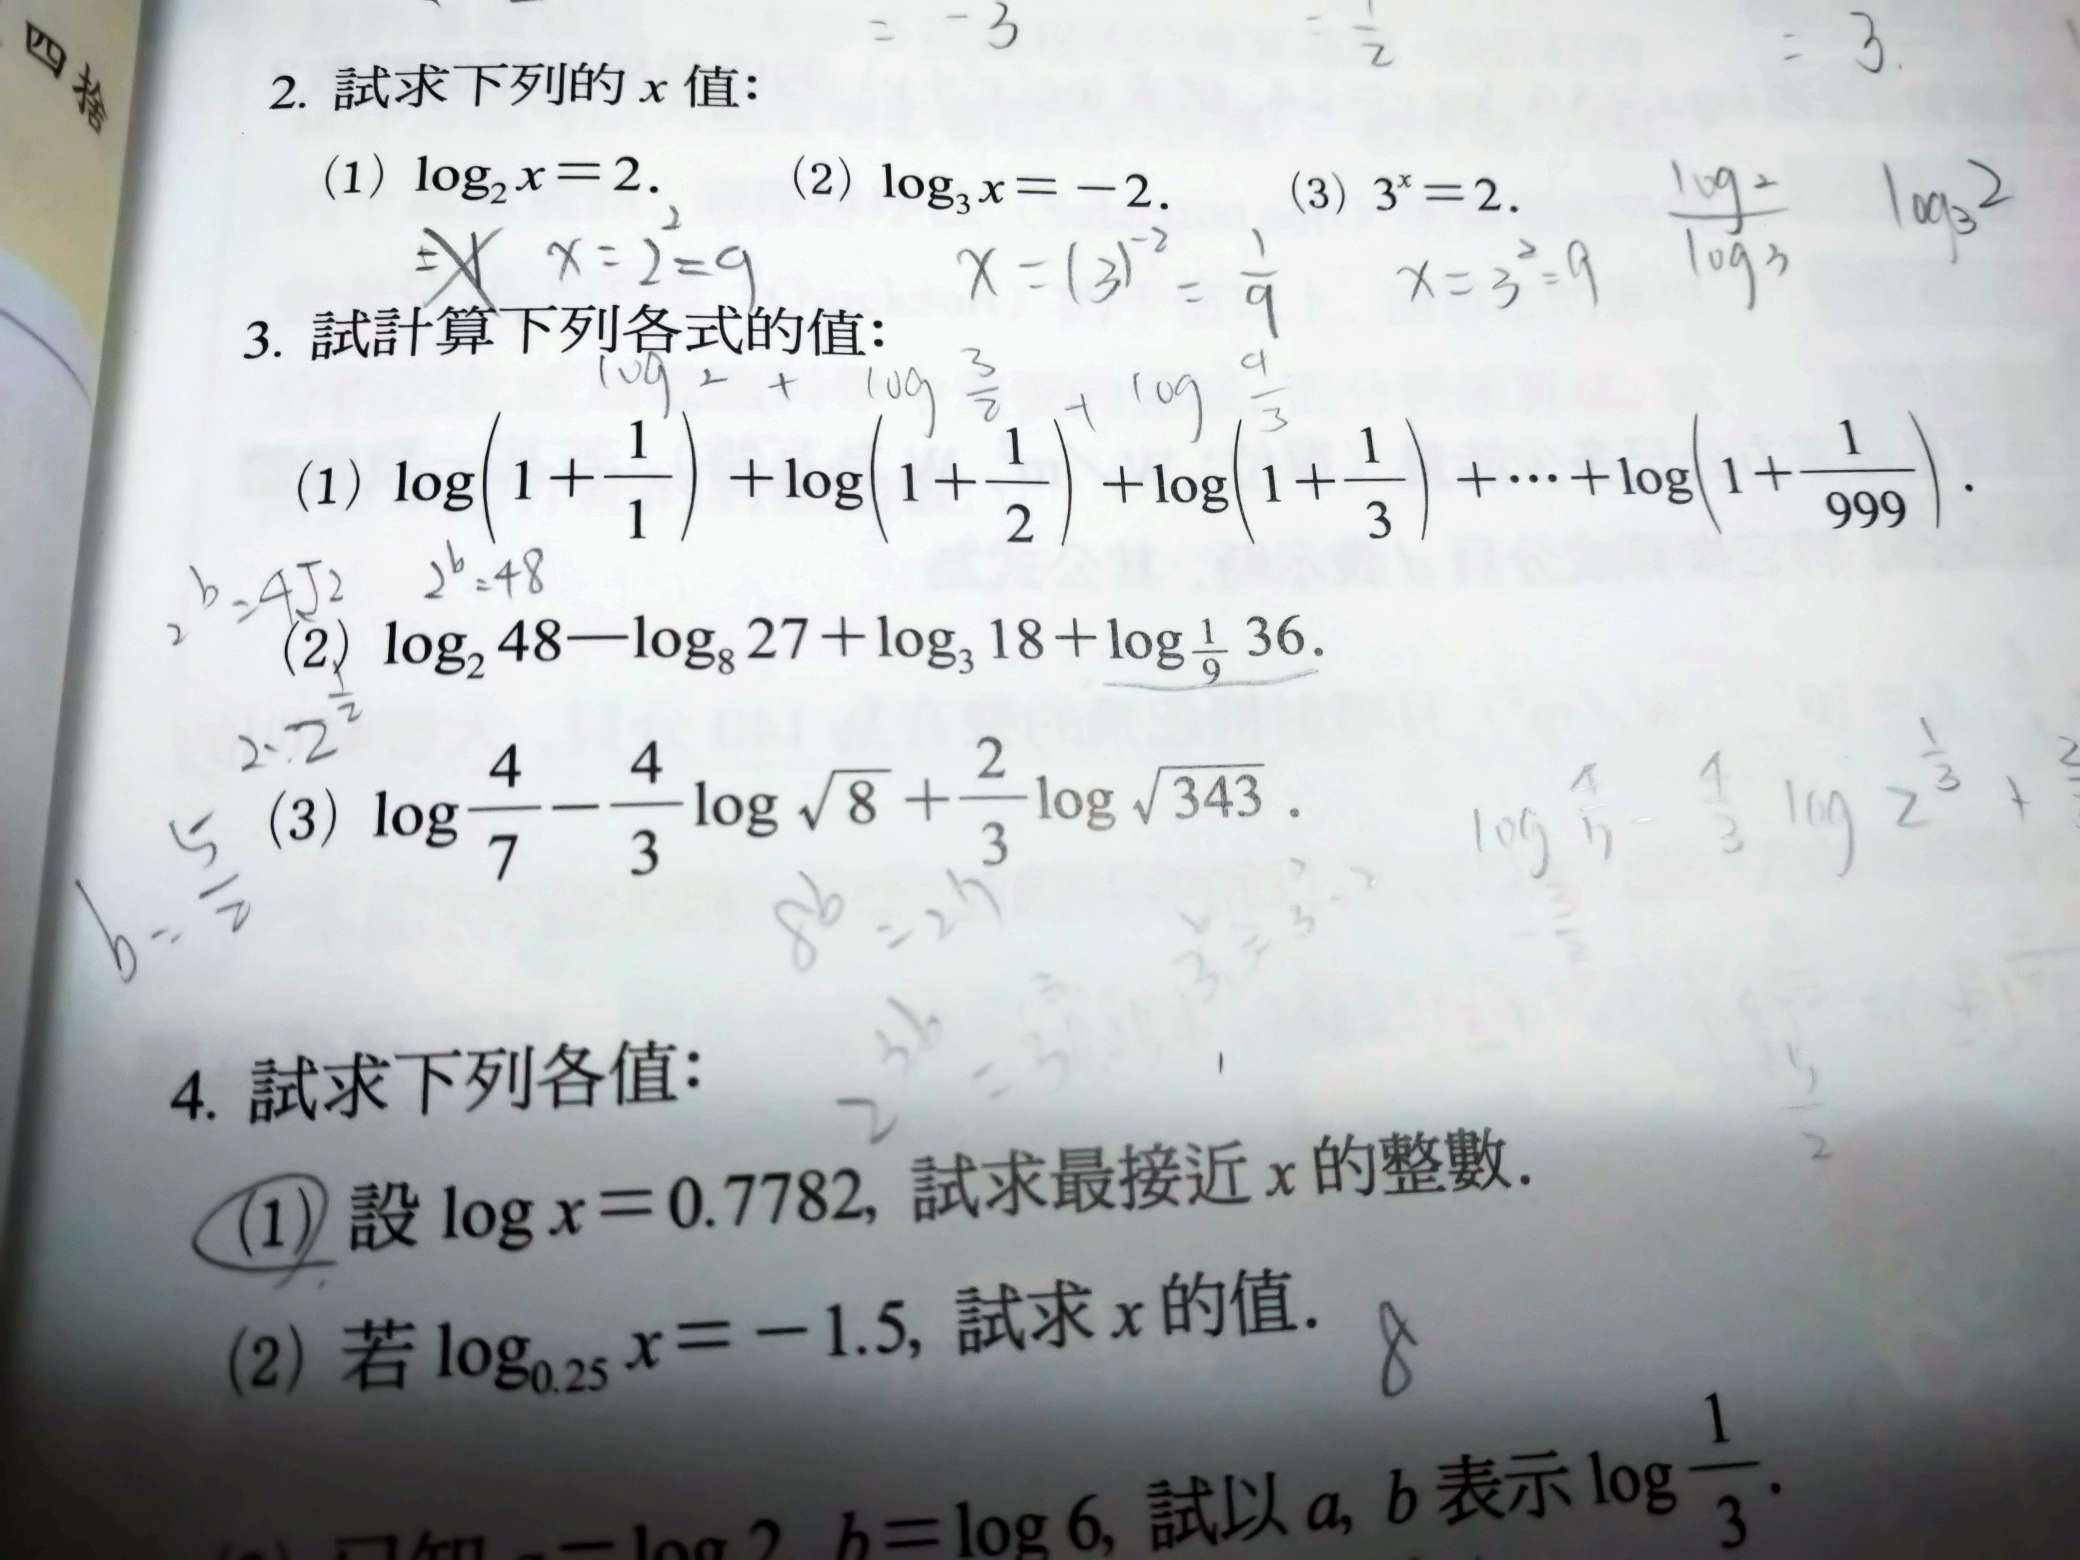 四捨
= -3
= 1/2
= 3.
2. 試求下列的 x 值：
(1) log₂ x = 2.
(2) log₃ x = −2.
(3) 3ˣ = 2.
log 2 / log 3
log₃ 2
x = 2² = 9
x = (3)⁻² = 1/9
x = 3² = 9
3. 試計算下列各式的值：
log 2 + log 3/2 + log 4/3
(1) log(1 + 1/1) + log(1 + 1/2) + log(1 + 1/3) + ⋯ + log(1 + 1/999).
2ᵇ = 4√2
2ᵇ = 48
(2) log₂ 48 — log₈ 27 + log₃ 18 + log_{1/9} 36.
2·2^{1/2}
(3) log 4/7 − 4/3 log √8 + 2/3 log √343.
log 4/7 - 4/3 log 2^{1/3} +
b = 5/2
8ᵇ = 27
2^{3b} = 3
5/2
4. 試求下列各值：
(1) 設 log x = 0.7782, 試求最接近 x 的整數.
(2) 若 log₀.₂₅ x = −1.5, 試求 x 的值.
8
已知 = log 2, b = log 6, 試以 a, b 表示 log 1/3.